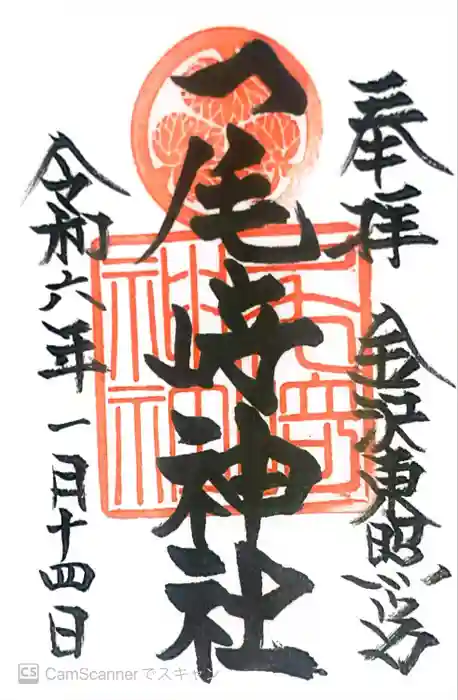 奉拝 金沢東照宮
尾崎神社
令和六年一月十四日
CS CamScannerでスキャン